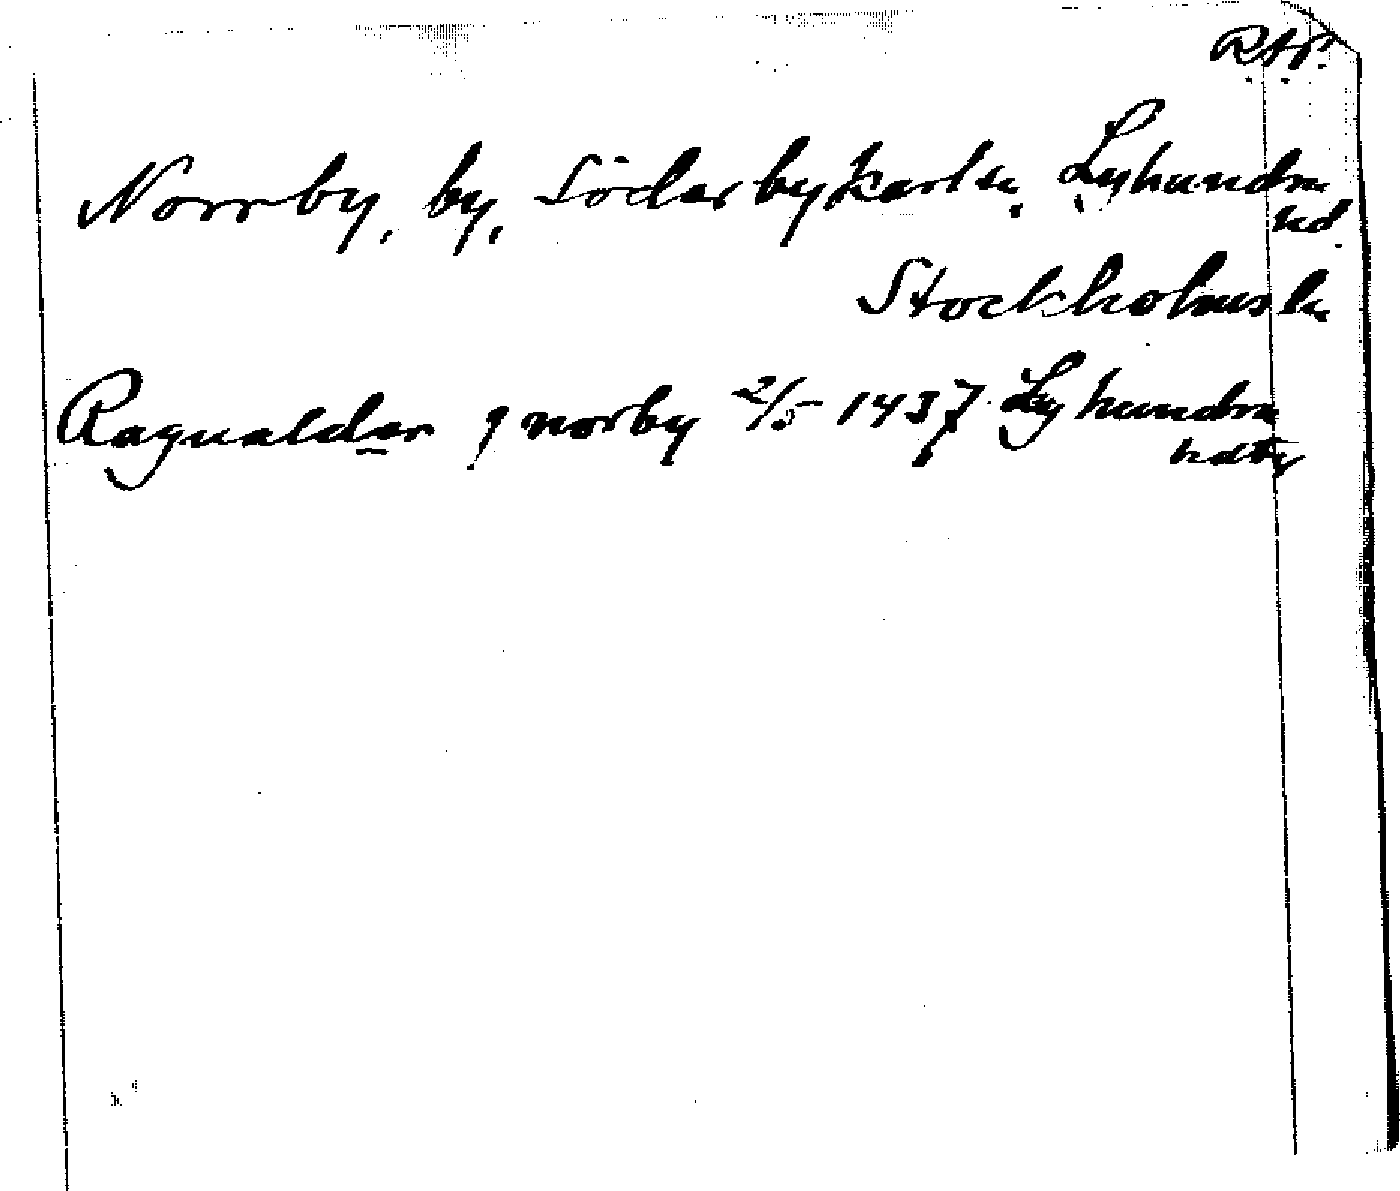 Rap.
Norrby, by, Söderbykarls, Lyhundra
hd.
Stockholms l.
Ragualder j norby 2/5 1437 Lyhundra
hdtg